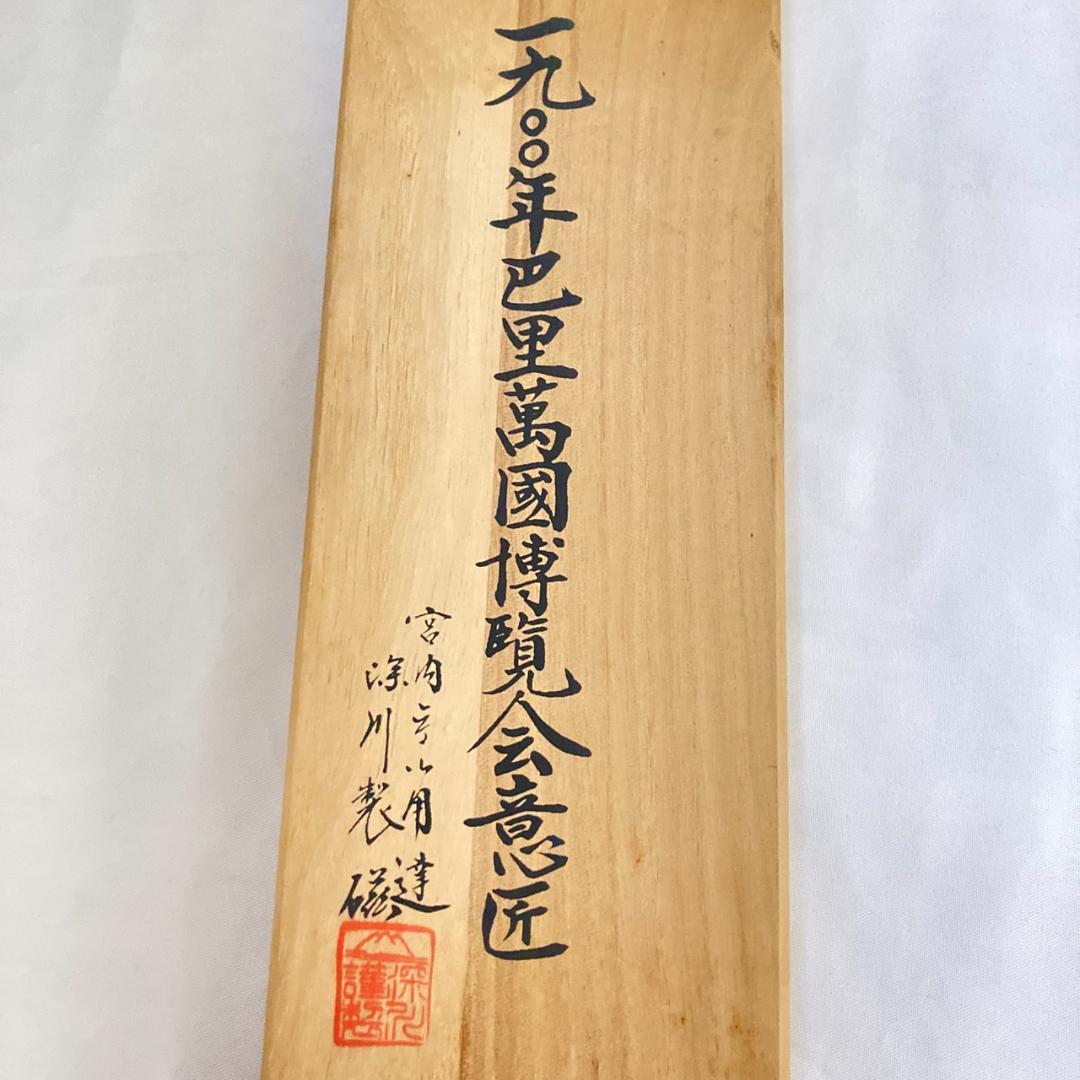 一九〇〇年巴里萬國博覧会意匠
宮内庁御用達
深川製磁
深川謹製